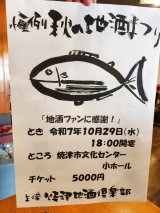 恒例り秋の地酒まつり
「地酒ファンに感謝！」
とき 令和7年10月29日(水)
18:00開宴
ところ 焼津市文化センター
小ホール
チケット 5000円
主催 焼津地酒倶楽部